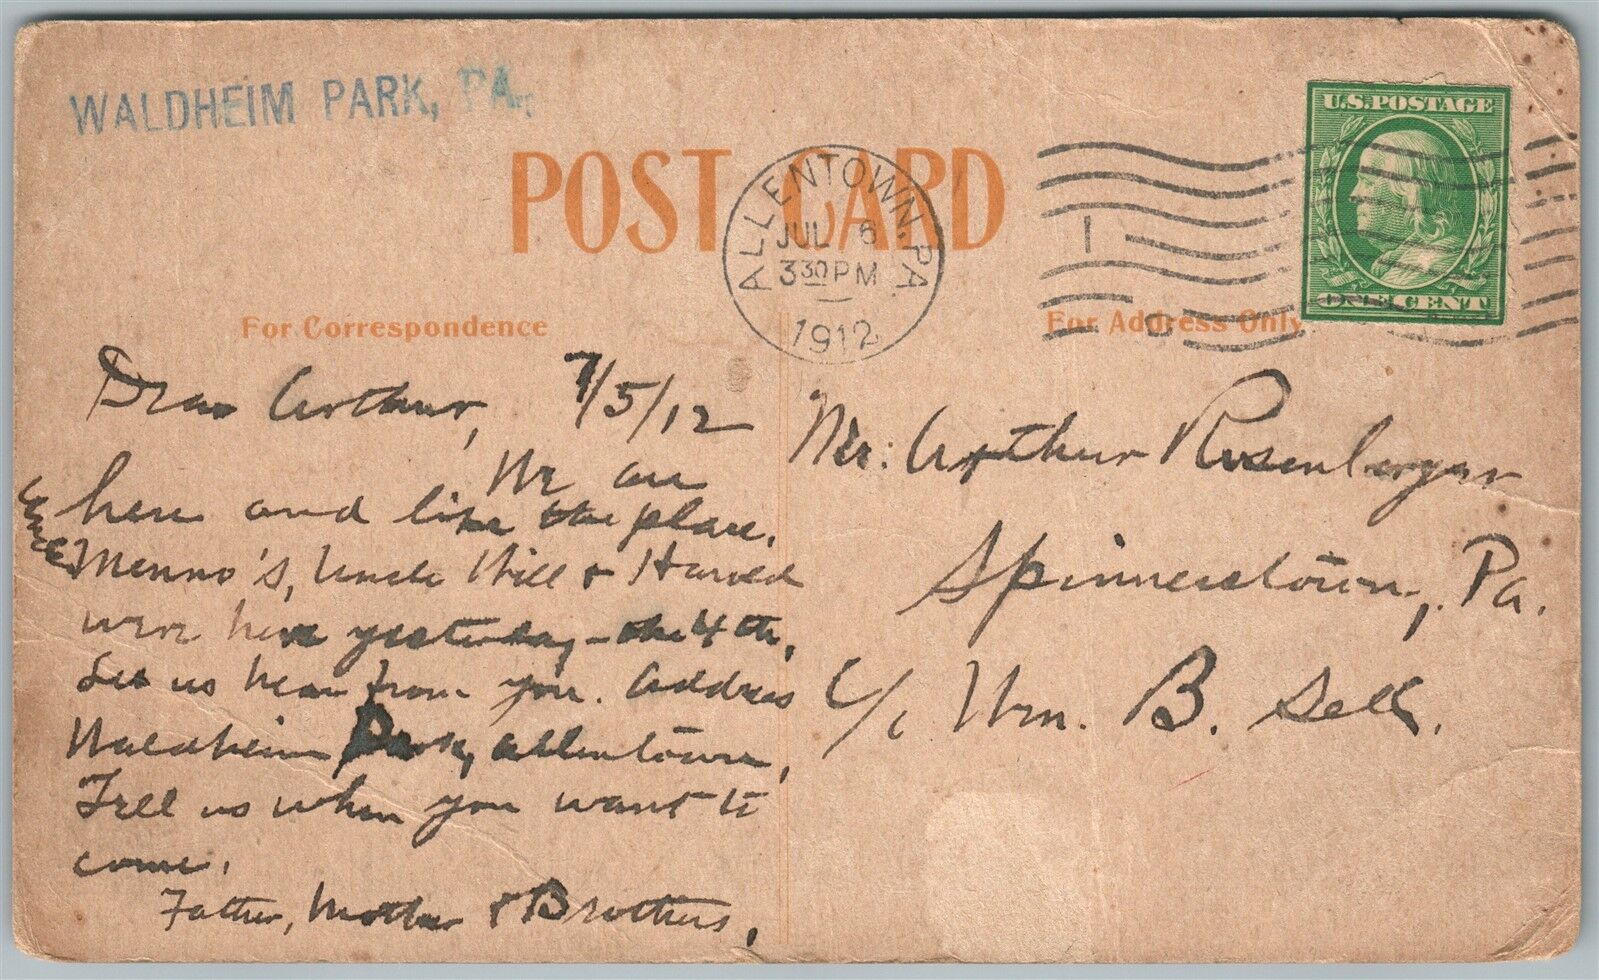 WALDHEIM PARK, PA.
POST CARD
ALLENTOWN, PA
JUL 6
3 30 PM
1912
1
U.S. POSTAGE
ONE CENT
For Correspondence
For Address Only
Dear Arthur, 7/5/12
We are
here and like the place.
Menno's, Uncle Will & Harold
were here yesterday - the 4th.
Let us hear from you. Address
Waldheim Park, Allentown,
Tell us when you want to
come.
Father, Mother & Brothers.
Mr. Arthur Rosenberger
Spinnerstown, Pa.
c/o Wm. B. Sell.